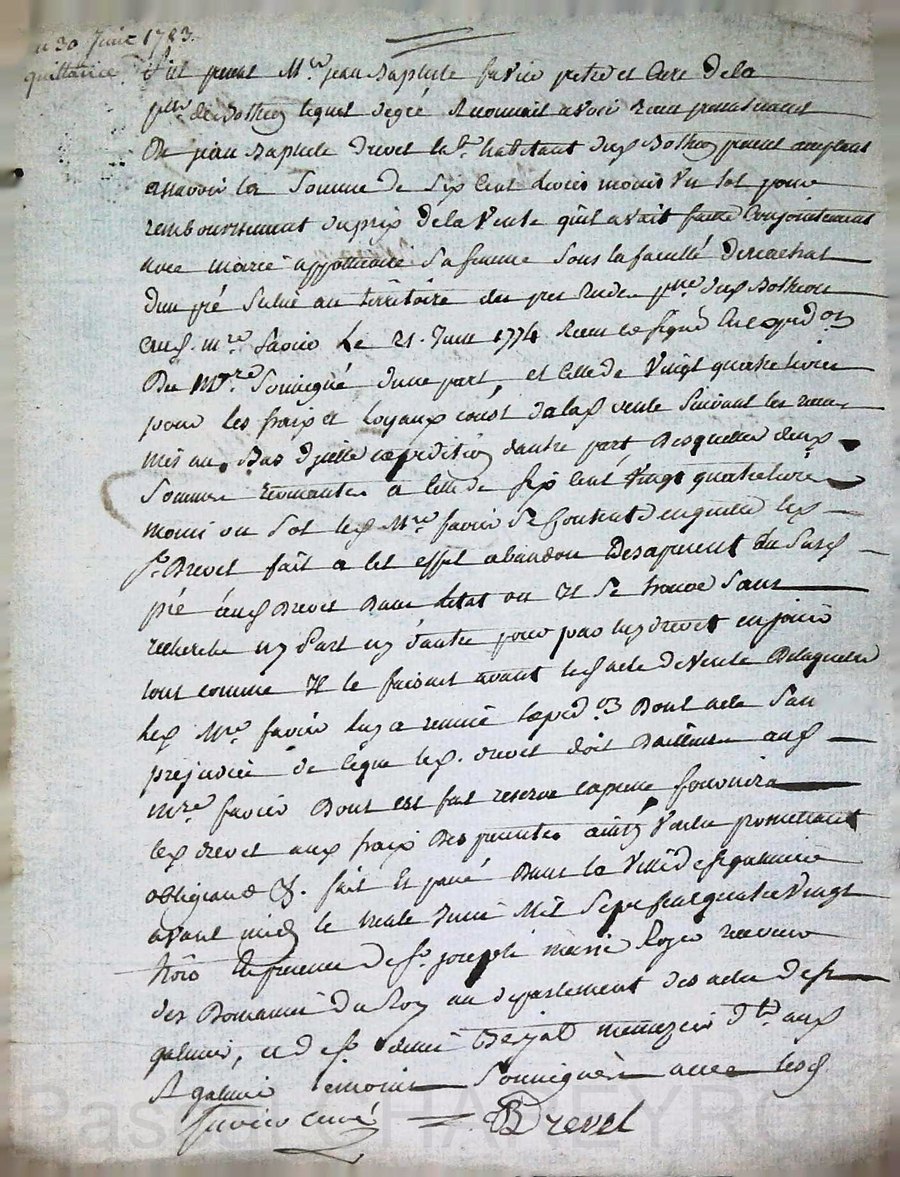 du 30 Juin 1783.
quittance
fut present Mre jean Baptiste favier pretre et Curé de la
psse de Bothéon lequel degré Reconnait avoir Receu presentement
De jean Baptiste Drevet habitant dud Bothéon present acceptant
assavoir la Somme de Six Cent livres moins Un sol pour
remboursement du prix de la Vente qu'il avait faitte Conjointement
avec marie sa femme Sous la faculté de rachat
Dun pré Situé au territoire des psse dud Bothéon
aud. mre favier Le 21. Juin 1774 Receu
Du Mre Soussigné dune part, et Celle de Vingt quatre livres
pour les fraix et loyaux coust de lad vente Suivant les
mis au Bas d'ycelle expedition dautre part Desquelles deux
Sommes revenantes a Celle de Six Cent Vingt quatre livres
moins un Sol led Mre favier Se Contente led
Sr Drevet fait a Cet effet abandon du Susd
pré aud Drevet Dans letat ou Il Se trouve Sans
recherche ny d'art ny d'autre pour par led Drevet en jouir
tout comme Il le faisait avant led acte de Vente De laquelle
led Mre favier luy a remis lexpedon Dont acte San
prejudice de Ceque led. drevet doit Dailleurs aud
mre favier Dont est fait reserve fournira
led drevet aux fraix Des presentes ainsy Voulu promettant
obligeant &. fait Et passé Dans la Ville de
avant midy le trente Juin Mil Sept Cent quatre Vingt
trois En presence de Sr joseph marie Royer receveur
des Domaines du Roy au departement des actes de St
galmier, et de Sr Menuzier dt aud
St galmier temoins Soussignés avec lesd
favier curé Drevet
Pascal CHAREYRON